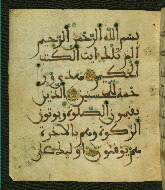 بسم الله الرحمن الرحيم
الم تلك ايت الكتب
الحكيم هدى ور
حمة للمحسنين الذين
يقيمون الصلوة ويوتون
الزكوة وهم بالاخرة
هم يوقنون اوليك على